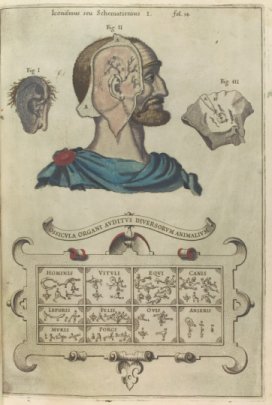 Iconismus seu Schematismus I. fol. 14
Fig II
Fig I
Fig III
A
B
OSSICULA ORGANI AUDITUS DIVERSORUM ANIMALIUM
HOMINIS VITULI EQUI CANIS
LEPORIS FELIS OVIS ANSERIS
MURIS PORCI